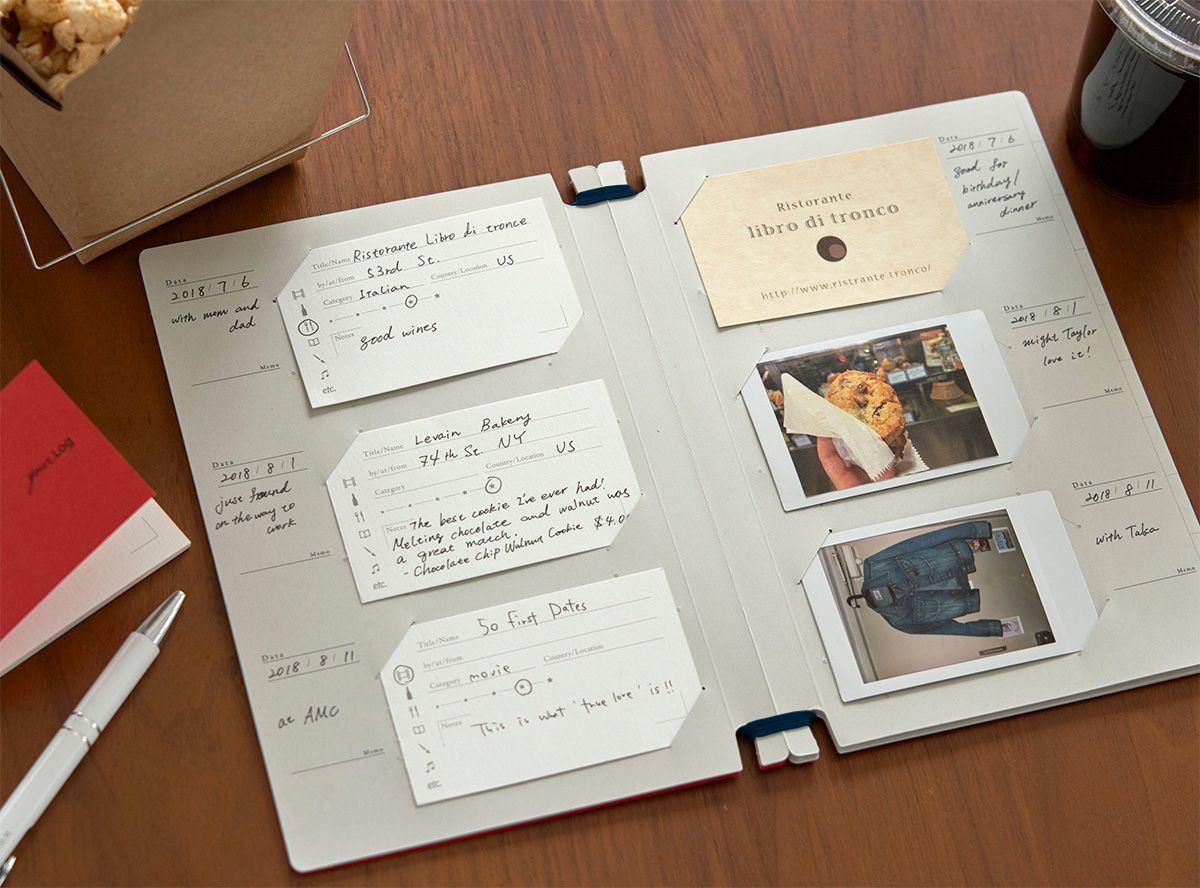 Data
2018 / 7 / 6
with mom and
dad
Memo
Title/Name Ristorante Libro di tronce
by/at/from 53rd St.
Category Italian Country/Location US
Notes good wines
etc.
Data
2018 / 8 / 1
just found
on the way to
work
Memo
Title/Name Levain Bakery
by/at/from 74th St. NY
Category Country/Location US
Notes The best cookie I've ever had!
Melting chocolate and walnut was
a great match.
- Chocolate Chip Walnut Cookie $4.0
etc.
Data
2018 / 8 / 11
at AMC
Memo
Title/Name 50 First Dates
by/at/from
Category movie Country/Location
Notes This is what 'true love' is!!
etc.
Ristorante
libro di tronco
http://www.ristrante.tronco/
Data
2018 / 7 / 6
good for
birthday/
anniversary
dinner
Memo
Data
2018 / 8 / 1
might Taylor
love it!
Memo
Data
2018 / 8 / 11
with Taka
Memo
your Log